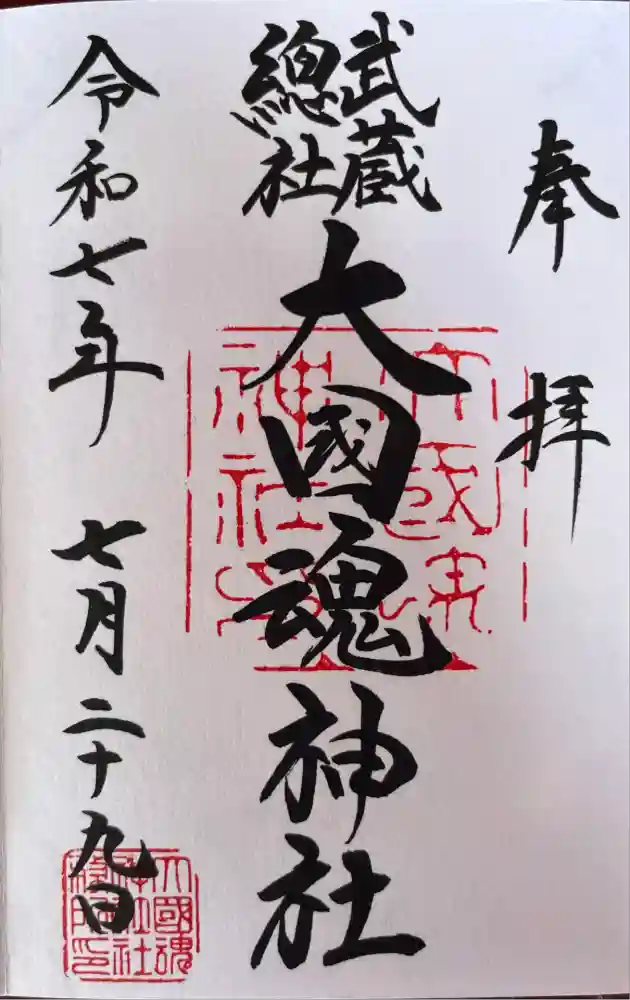 奉拝
武蔵
總社
大國魂神社
令和七年 七月二十九日